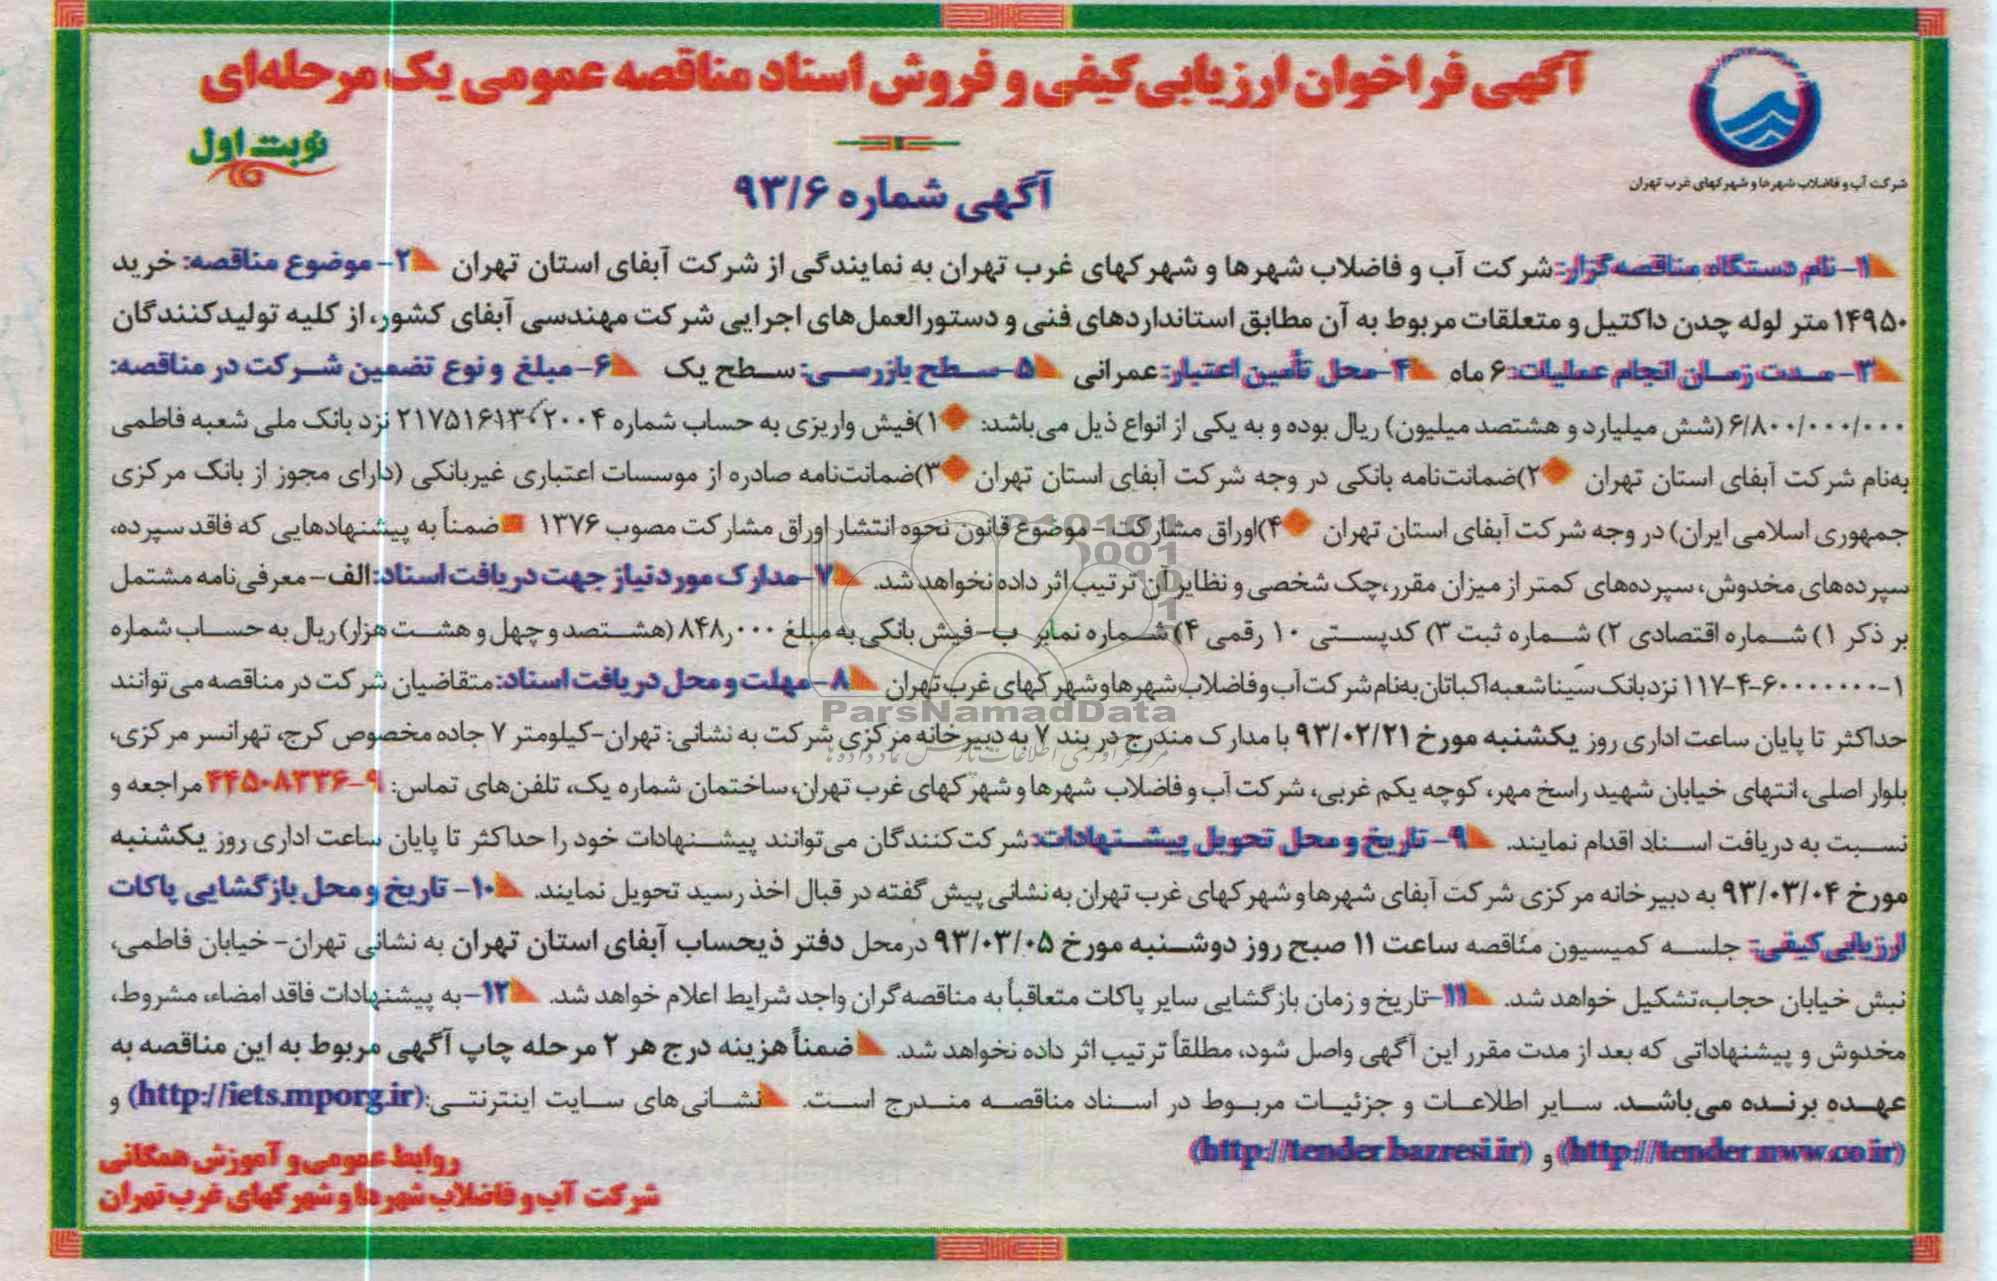 آگهی فراخوان ارزیابی کیفی و فروش اسناد مناقصه عمومی یک مرحله‌ای
نوبت اول
شرکت آب و فاضلاب شهرها و شهرکهای غرب تهران
آگهی شماره ۹۳/۶
۱- نام دستگاه مناقصه‌گزار: شرکت آب و فاضلاب شهرها و شهرکهای غرب تهران به نمایندگی از شرکت آبفای استان تهران ۲- موضوع مناقصه: خرید
۱۴۹۵۰ متر لوله چدن داکتیل و متعلقات مربوط به آن مطابق استانداردهای فنی و دستورالعمل‌های اجرایی شرکت مهندسی آبفای کشور، از کلیه تولیدکنندگان
۳- مدت زمان انجام عملیات: ۶ ماه ۴- محل تأمین اعتبار: عمرانی ۵- سطح بازرسی: سطح یک ۶- مبلغ و نوع تضمین شرکت در مناقصه:
۶/۸۰۰/۰۰۰/۰۰۰ (شش میلیارد و هشتصد میلیون) ریال بوده و به یکی از انواع ذیل می‌باشد: ۱) فیش واریزی به حساب شماره ۲۱۷۵۱۶۱۳۰۲۰۰۴ نزد بانک ملی شعبه فاطمی
به‌نام شرکت آبفای استان تهران ۲) ضمانت‌نامه بانکی در وجه شرکت آبفای استان تهران ۳) ضمانت‌نامه صادره از موسسات اعتباری غیربانکی (دارای مجوز از بانک مرکزی
جمهوری اسلامی ایران) در وجه شرکت آبفای استان تهران ۴) اوراق مشارکت - موضوع قانون نحوه انتشار اوراق مشارکت مصوب ۱۳۷۶ ضمناً به پیشنهادهایی که فاقد سپرده،
سپرده‌های مخدوش، سپرده‌های کمتر از میزان مقرر، چک شخصی و نظایر آن ترتیب اثر داده نخواهد شد. ۷- مدارک مورد نیاز جهت دریافت اسناد: الف - معرفی‌نامه مشتمل
بر ذکر ۱) شماره اقتصادی ۲) شماره ثبت ۳) کدپستی ۱۰ رقمی ۴) شماره نمابر ب- فیش بانکی به مبلغ ۸۴۸٫۰۰۰ (هشتصد و چهل و هشت هزار) ریال به حساب شماره
۱۱۷-۴-۶۰۰۰۰۰۰۰-۱ نزد بانک سینا شعبه اکباتان به‌نام شرکت آب و فاضلاب شهرها و شهرکهای غرب تهران ۸- مهلت و محل دریافت اسناد: متقاضیان شرکت در مناقصه می‌توانند
حداکثر تا پایان ساعت اداری روز یکشنبه مورخ ۹۳/۰۲/۲۱ با مدارک مندرج در بند ۷ به دبیرخانه مرکزی شرکت به نشانی: تهران-کیلومتر ۷ جاده مخصوص کرج، تهرانسر مرکزی،
بلوار اصلی، انتهای خیابان شهید راسخ مهر، کوچه یکم غربی، شرکت آب و فاضلاب شهرها و شهرکهای غرب تهران، ساختمان شماره یک، تلفن‌های تماس: ۹-۴۴۵۰۸۳۳۶ مراجعه و
نسبت به دریافت اسناد اقدام نمایند. ۹- تاریخ و محل تحویل پیشنهادات: شرکت‌کنندگان می‌توانند پیشنهادات خود را حداکثر تا پایان ساعت اداری روز یکشنبه
مورخ ۹۳/۰۳/۰۴ به دبیرخانه مرکزی شرکت آبفای شهرها و شهرکهای غرب تهران به نشانی پیش گفته در قبال اخذ رسید تحویل نمایند. ۱۰- تاریخ و محل بازگشایی پاکات
ارزیابی کیفی: جلسه کمیسیون مناقصه ساعت ۱۱ صبح روز دوشنبه مورخ ۹۳/۰۳/۰۵ درمحل دفتر ذیحساب آبفای استان تهران به نشانی تهران- خیابان فاطمی،
نبش خیابان حجاب، تشکیل خواهد شد. ۱۱- تاریخ و زمان بازگشایی سایر پاکات متعاقباً به مناقصه‌گران واجد شرایط اعلام خواهد شد. ۱۲- به پیشنهادات فاقد امضاء، مشروط،
مخدوش و پیشنهاداتی که بعد از مدت مقرر این آگهی واصل شود، مطلقاً ترتیب اثر داده نخواهد شد. ضمناً هزینه درج هر ۲ مرحله چاپ آگهی مربوط به این مناقصه به
عهده برنده می‌باشد. سایر اطلاعات و جزئیات مربوط در اسناد مناقصه مندرج است. نشانی‌های سایت اینترنتی: (http://iets.mporg.ir) و
(http://tender.nww.co.ir) و (http://tender.bazresi.ir)
روابط عمومی و آموزش همگانی
شرکت آب و فاضلاب شهرها و شهرکهای غرب تهران
ParsNamadData